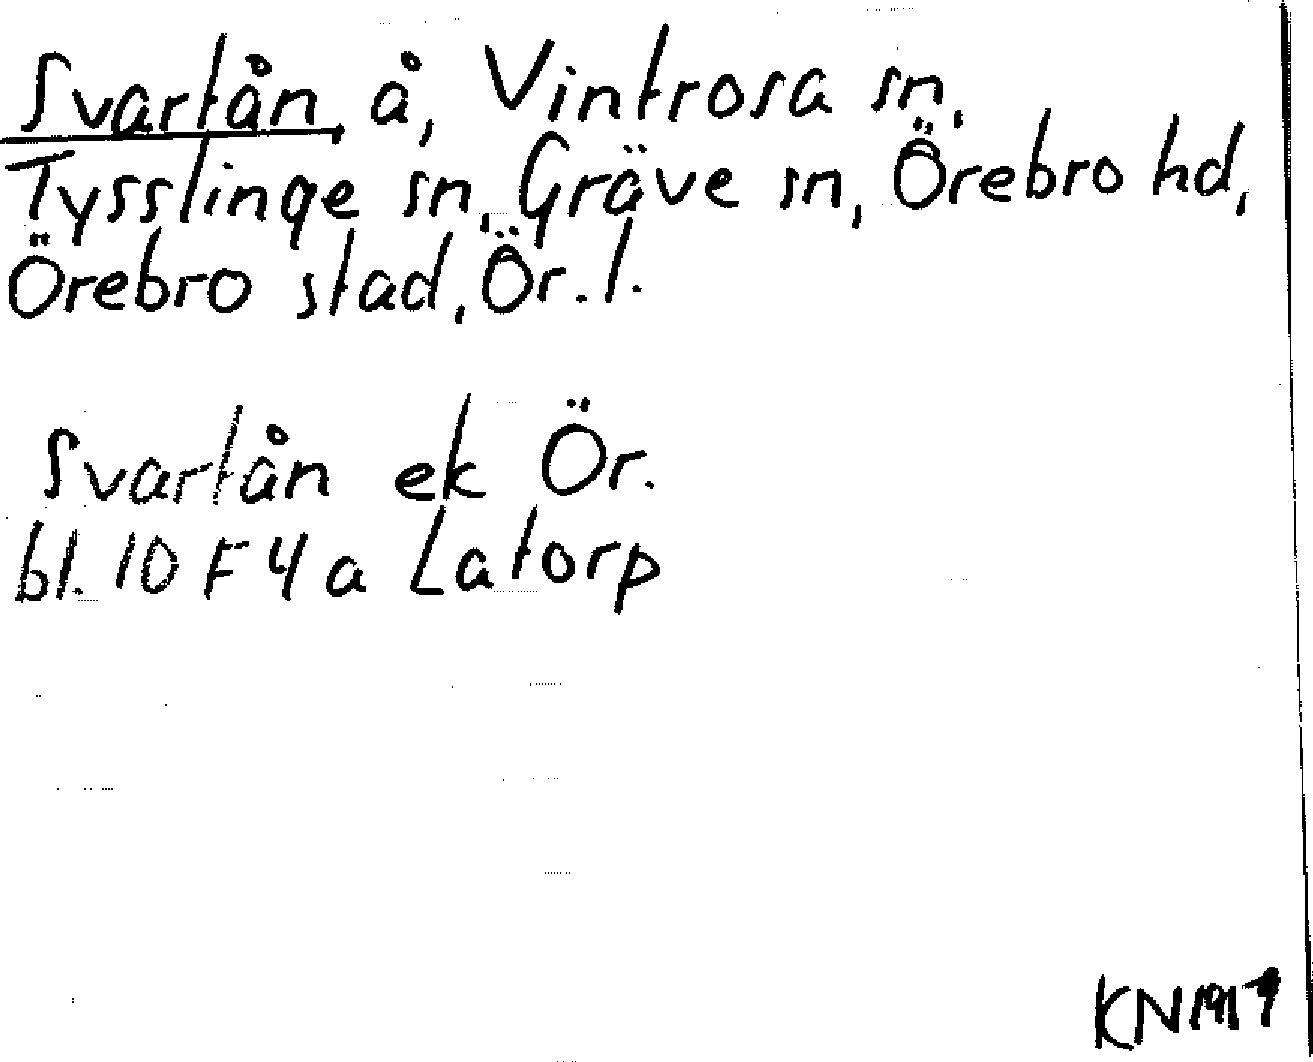 Svartån, å, Vintrosa sn,
Tysslinge sn, Gräve sn, Örebro hd,
Örebro stad, Ör. l.
Svartån ek Ör.
bl. 10 F 4 a Latorp
KN